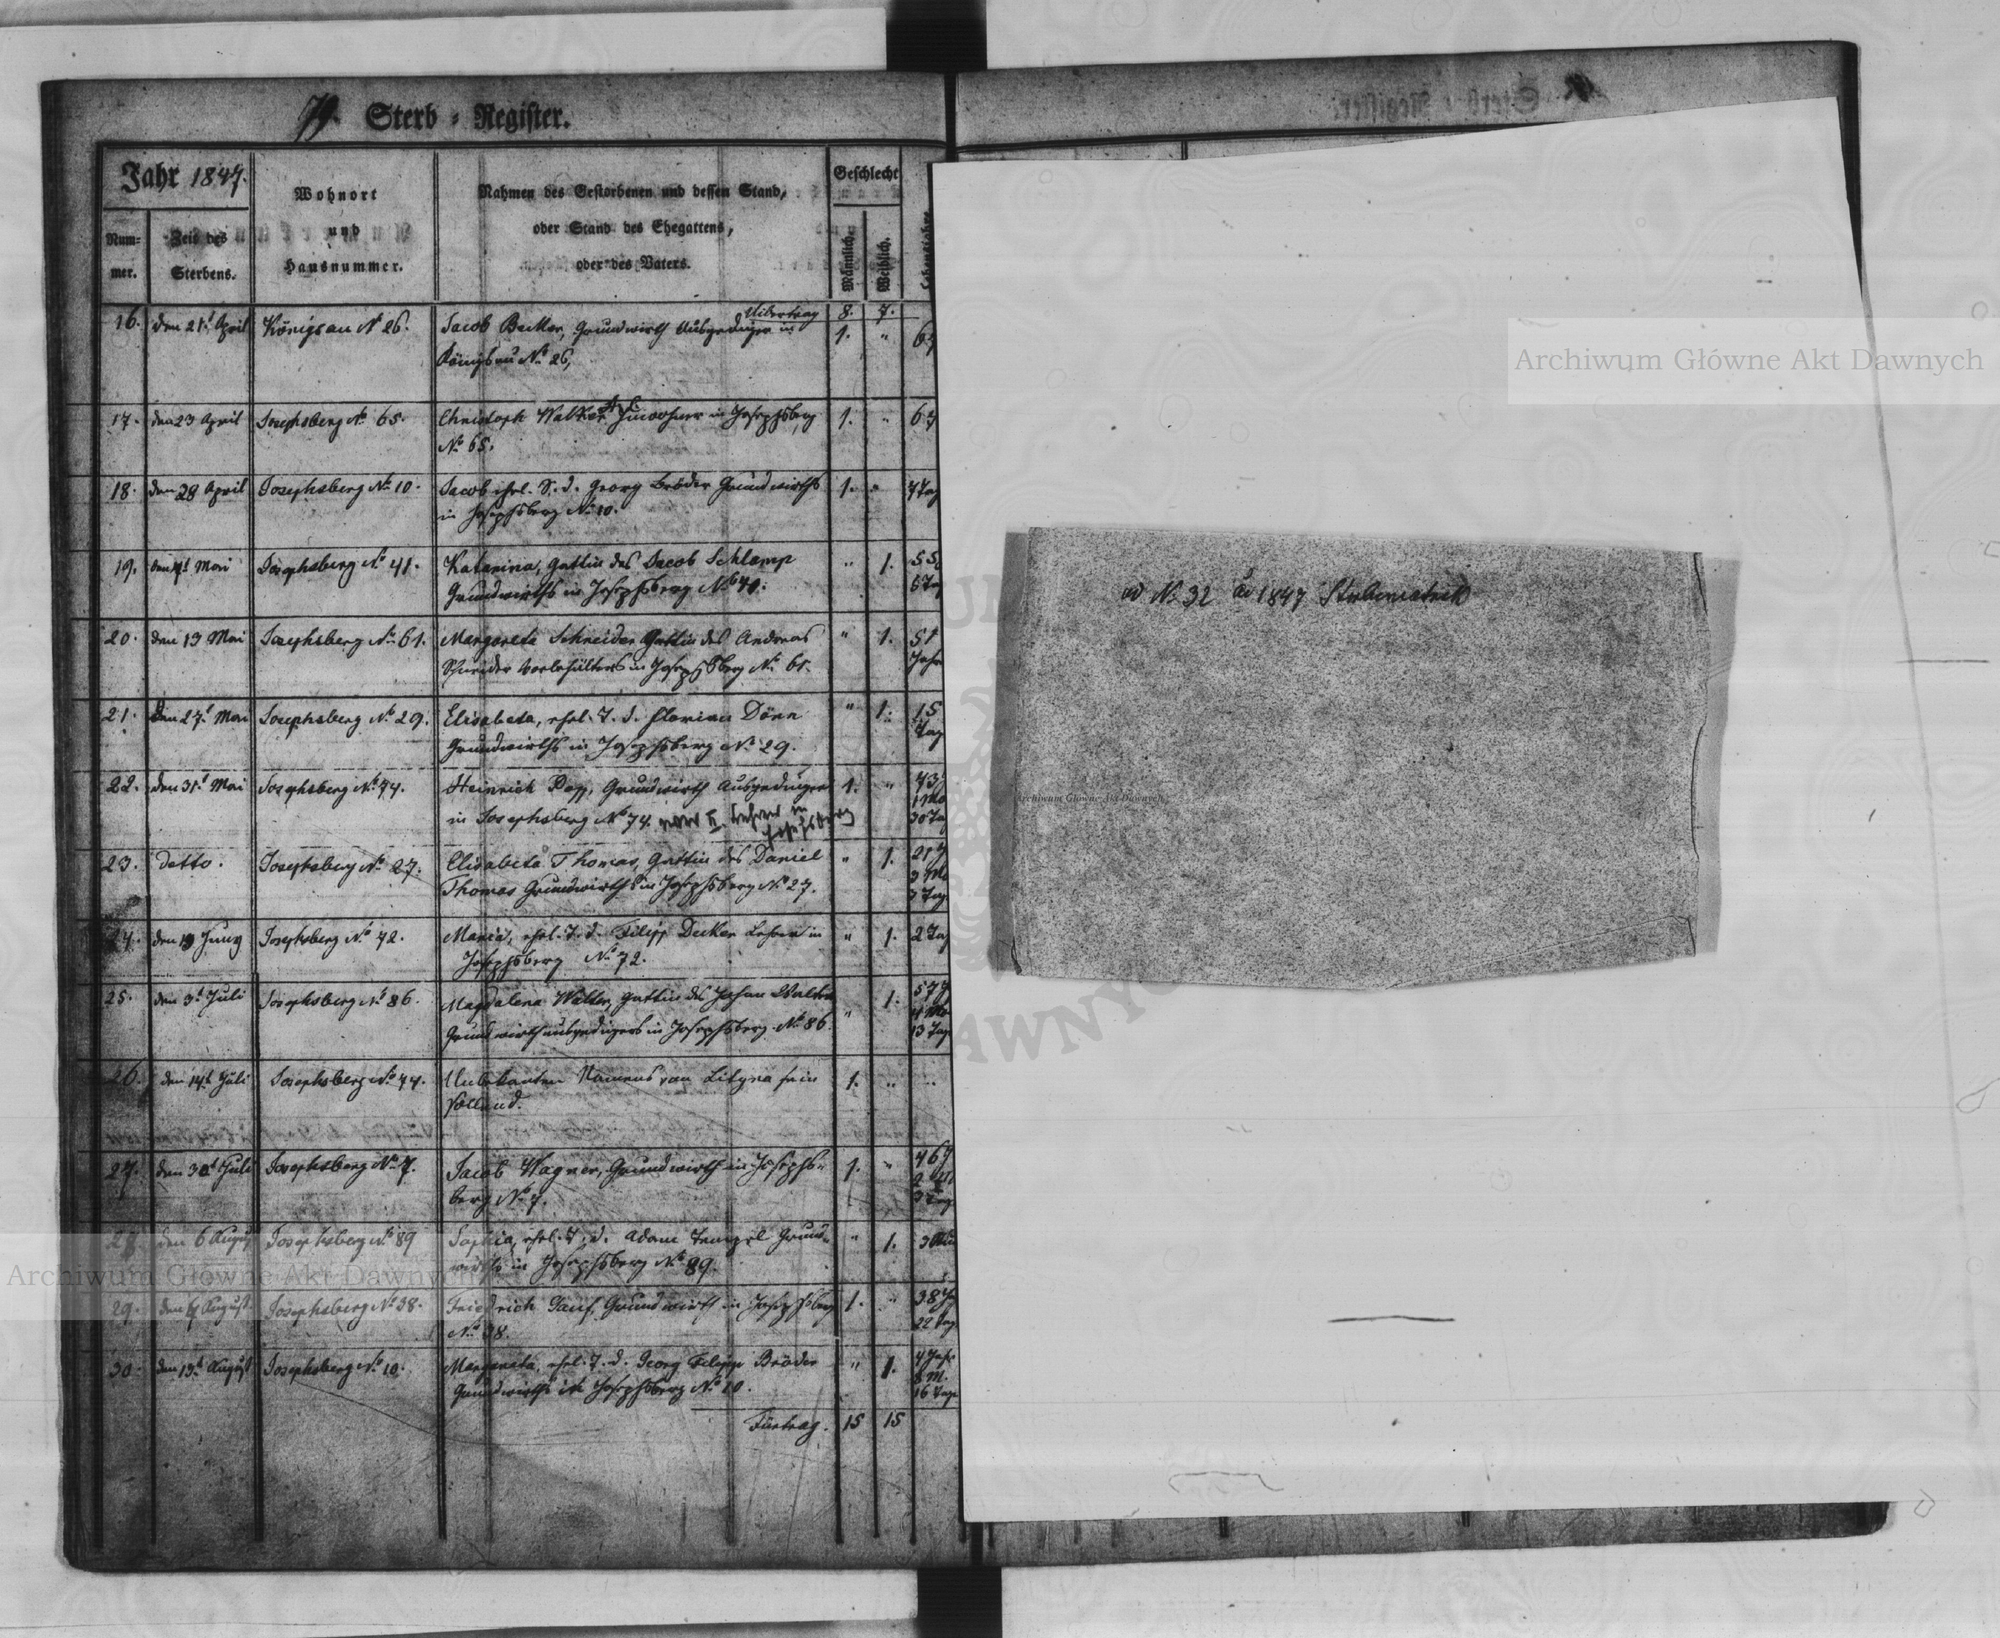 79. Sterb = Register.
Jahr 1847.
Num=
mer.
Zeit des
Sterbens.
Wohnort
und
Hausnummer.
Nahmen des Gestorbenen und dessen Stand,
oder Stand des Ehegattens,
oder des Vaters.
Geschlecht
Männlich.
Weiblich.
8. 7.
16. den 21t April Königsau No 26. Jacob Becker, Grundwirth Ausgedinger in 1. "
Königsau No 26,
17. den 23 April Josephsberg No 65. Christoph Walker A.C. Inwohner in Josephsberg 1. " 67
No 65.
18. den 28 April Josephsberg No 10. Jacob ehel. S. d. Georg Bröder Grundwirths 1. " 7 Tag
in Josephsberg No 10.
19. Mai Josephsberg No 41. Katarina, Gattin des Jacob Schlamp " 1. 55
Grundwirths in Josephsberg No 41.
20. den 13 Mai Josephsberg No 61. Margareta Schneider Gattin des Andreas " 1. 51
Schneider in Josephsberg No 61. Jahre
21. den 27t Mai Josephsberg No 29. Elisabeta, ehel. T. d. Florian Dörn " 1. 15
Grundwirths in Josephsberg No 29. Tag
22. den 31t Mai Josephsberg No 74. Heinrich Popp, Grundwirth Ausgedinger 1. " 73
in Josephsberg No 74. war II. Lehrer in
Josefsberg
23. detto. Josephsberg No 27. Elisabeta Thomas, Gattin des Daniel " 1. 21
Thomas Grundwirths in Josephsberg No 27.
24. den 19 Juny Josephsberg No 72. Maria, ehel. T. d. Filipp Decker Lehrer in " 1. 2 Tag
Josephsberg No 72.
25. den 3t Juli Josephsberg No 86. Magdalena Walter, Gattin des Johan Walter " 1. 57
Grundwirthausgedingers in Josephsberg No 86. 13 Tag
26. den 14t Juli Josephsberg No 44. Unbekanten Namens von Lityna sein 1. "
27. den 30t Juli Josephsberg No 7. Jacob Wagner, Grundwirth in Josephs= 1. " 46
berg No 7.
28. den 6 August Josephsberg No 89 Sophia, ehel. T. d. Adam Tempel Grund= " 1. 3
wirths in Josephsberg No 89.
29. August Josephsberg No 38. Friedrich Grundwirth in Josephsberg 1. " 38
No 38. 22 Tag
30. den 13t August Josephsberg No 10. Margareta, ehel. T. d. Georg Filipp Bröder " 1.
Grundwirths in Josephsberg No 10. 8 M.
16 Tage
Fürtrag. 15 15
ad No 32 de 1847 Sterbematrik
Archiwum Główne Akt Dawnych
Archiwum Główne Akt Dawnych
Archiwum Główne Akt Dawnych